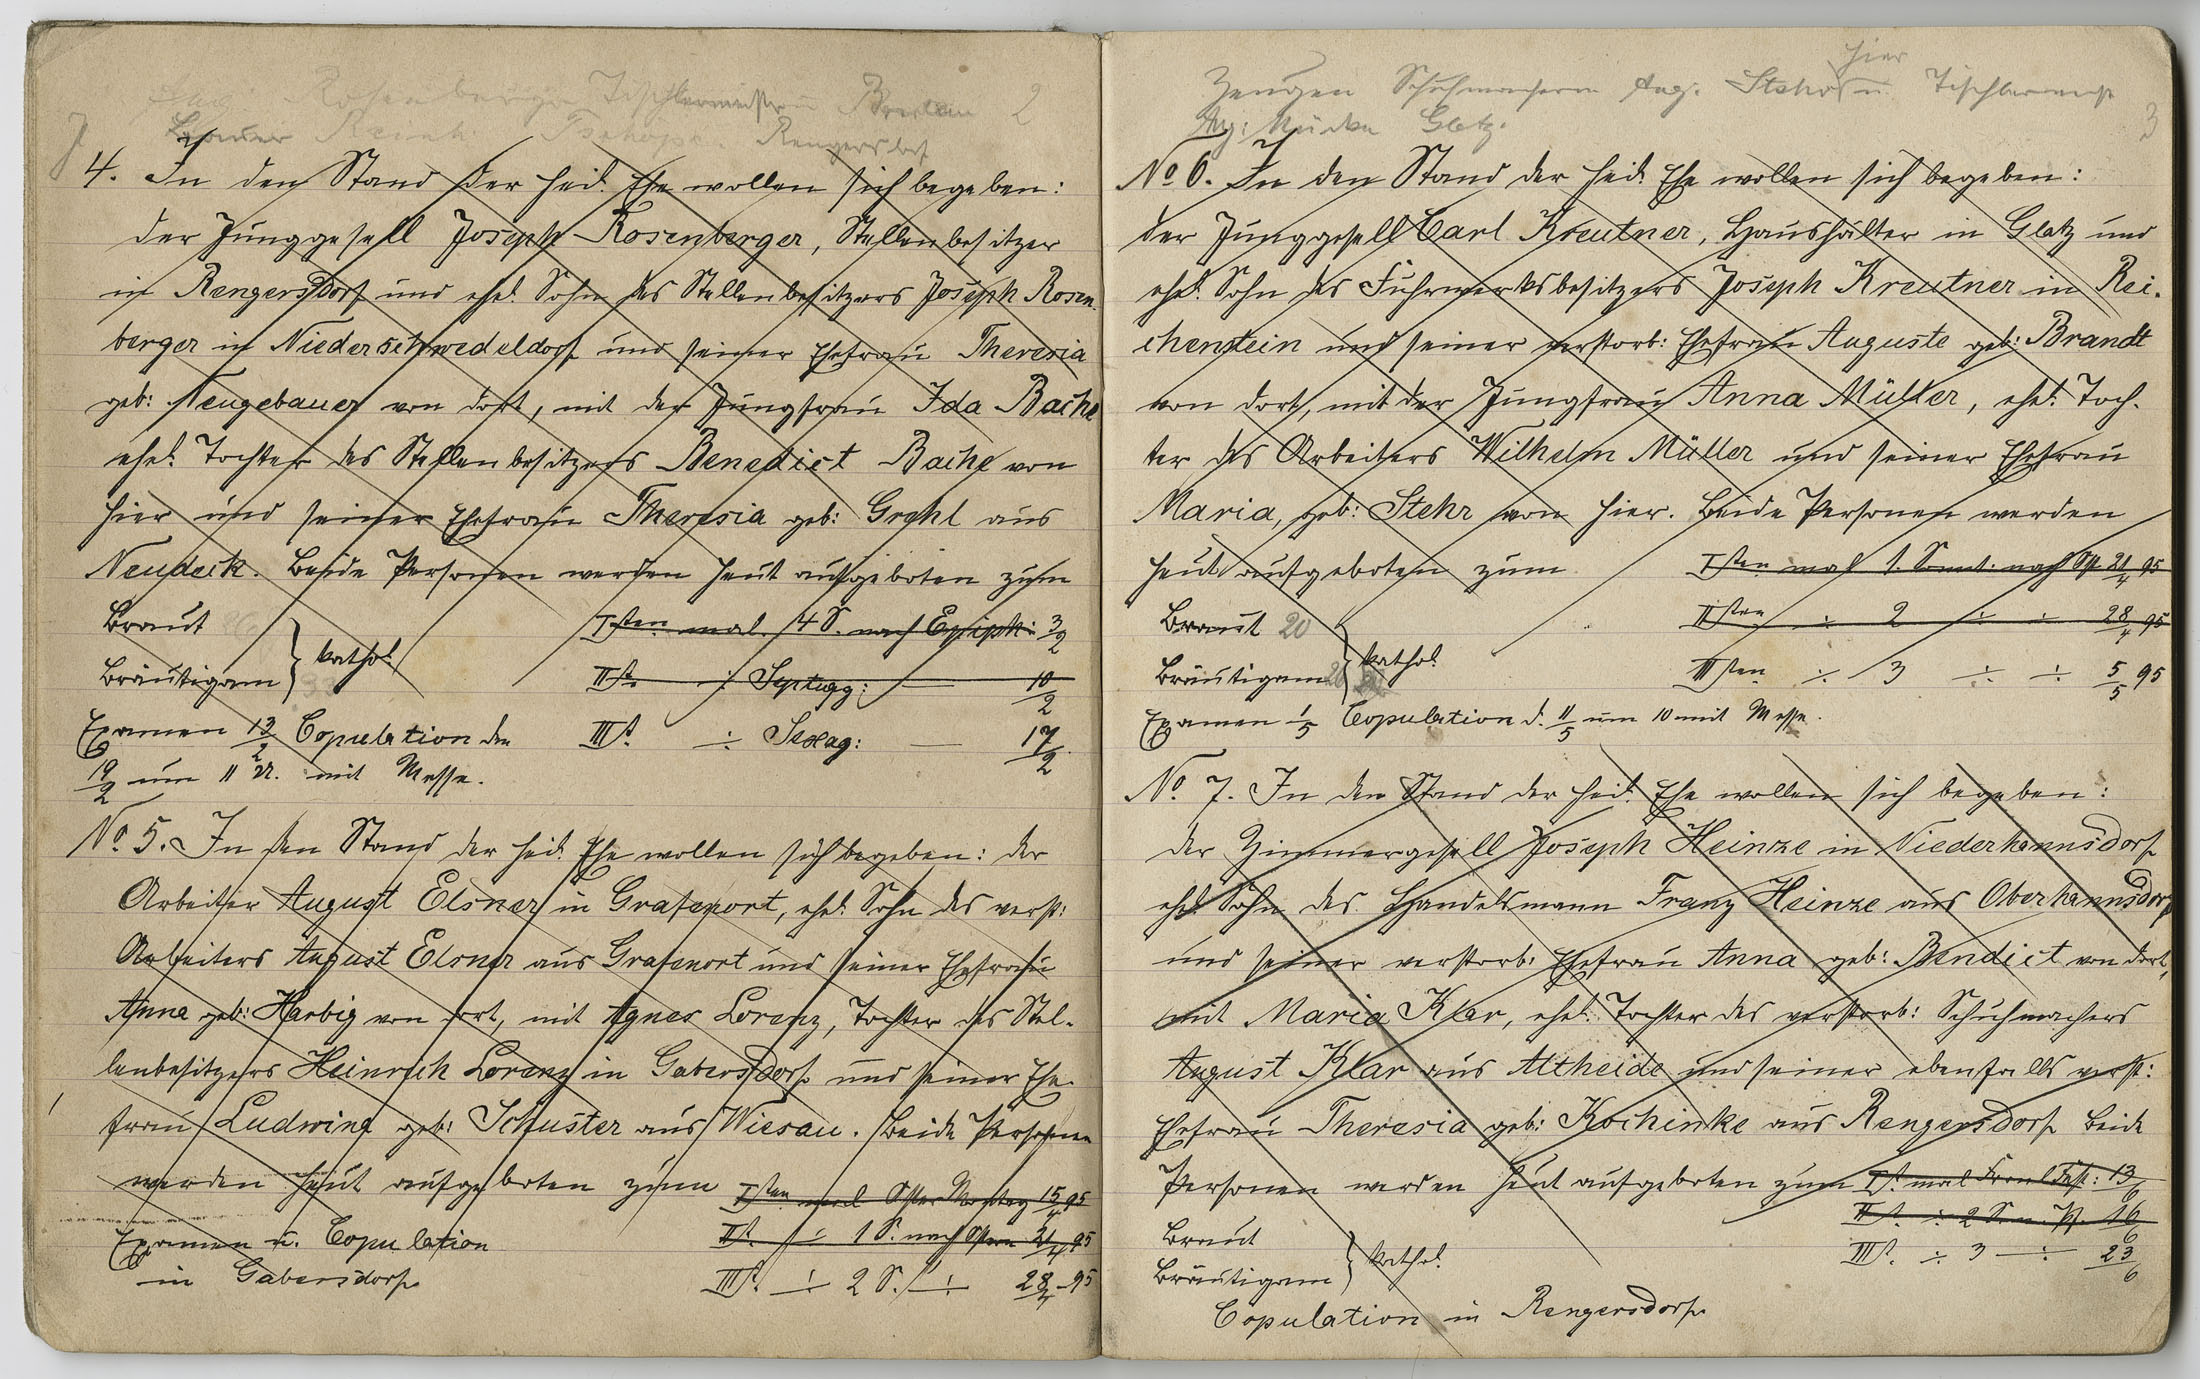 Rosenberger Tischlermeister Breslau 2
Reinh. Tschöpe. Rengersdorf
4. In den Stand der heil. Ehe wollen sich begeben:
der Junggesell Joseph Rosenberger, Stellenbesitzer
in Rengersdorf und ehel. Sohn des Stellenbesitzers Joseph Rosen-
berger in Niederschwedeldorf und seiner Ehefrau Theresia
geb: Neugebauer von dort, mit der Jungfrau Ida Bache
ehel. Tochter des Stellenbesitzers Benedict Bache von
hier und seiner Ehefrau Theresia geb: Grehl aus
Neudeck. Beide Personen werden heut aufgeboten zum
Braut
Bräutigam } kathol.
Isten mal. 4 S. nach Epiph: 3/2
IIt. ÷ Septuag: — 10/2
IIIt. ÷ Sexag: — 17/2
Examen 13/2 Copulation den
19/2 um 11 U. mit Messe.
No. 5. In den Stand der heil. Ehe wollen sich begeben: der
Arbeiter August Elsner in Grafenort, ehel. Sohn des verst:
Arbeiters August Elsner aus Grafenort und seiner Ehefrau
Anna geb: Harbig von dort, mit Agnes Lorenz, Tochter des Stel-
lenbesitzers Heinrich Lorenz in Gabersdorf und seiner Ehe-
frau Ludwina geb: Schuster aus Wiesau. Beide Personen
werden heut aufgeboten zum Isten mal Oster Montag 15/4 95
IIt. ÷ 1 S. nach Ostern 21/4 95
IIIt. ÷ 2 S. ÷ 28/4 95
Examen u. Copulation
in Gabersdorf
hier
Zeugen Schuhmacherm Aug. u Tischlermeist
Aug: Mücke Glatz. 3
No 6. In den Stand der heil. Ehe wollen sich begeben:
der Junggesell Carl Kreutner, Haushälter in Glatz und
ehel. Sohn des Fuhrwerksbesitzers Joseph Kreutner in Rei-
chenstein und seiner verstorb: Ehefrau Auguste geb: Brandt
von dort, mit der Jungfrau Anna Müller, ehel. Toch-
ter des Arbeiters Wilhelm Müller und seiner Ehefrau
Maria, geb: Stehr von hier. Beide Personen werden
heut aufgeboten zum Isten mal 1. Sonnt. nach Ost. 21/4 95
IIsten ÷ 2 ÷ ÷ 28/4 95
IIIsten ÷ 3 ÷ ÷ 5/5 95
Braut 20
Bräutigam 26 } kathol.
Examen 1/5 Copulation d. 11/5 um 10 mit Messe.
No. 7. In den Stand der heil. Ehe wollen sich begeben:
der Zimmergesell Joseph Heinze in Niederhannsdorf
ehel. Sohn des Handelsmann Franz Heinze aus Oberhannsdorf
und seiner verstorb: Ehefrau Anna geb: Bendict von dort,
mit Maria Klar, ehel. Tochter des verstorb: Schuhmachers
August Klar aus Altheide und seiner ebenfalls verst:
Ehefrau Theresia geb: Kochinke aus Rengersdorf Beide
Personen werden heut aufgeboten zum It. mal Fronl Fest: 13/6
IIt. ÷ 2 S. n. Pf. 16/6
IIIt. ÷ 3 — ÷ 23/6
Braut
Bräutigam } kathol.
Copulation in Rengersdorf